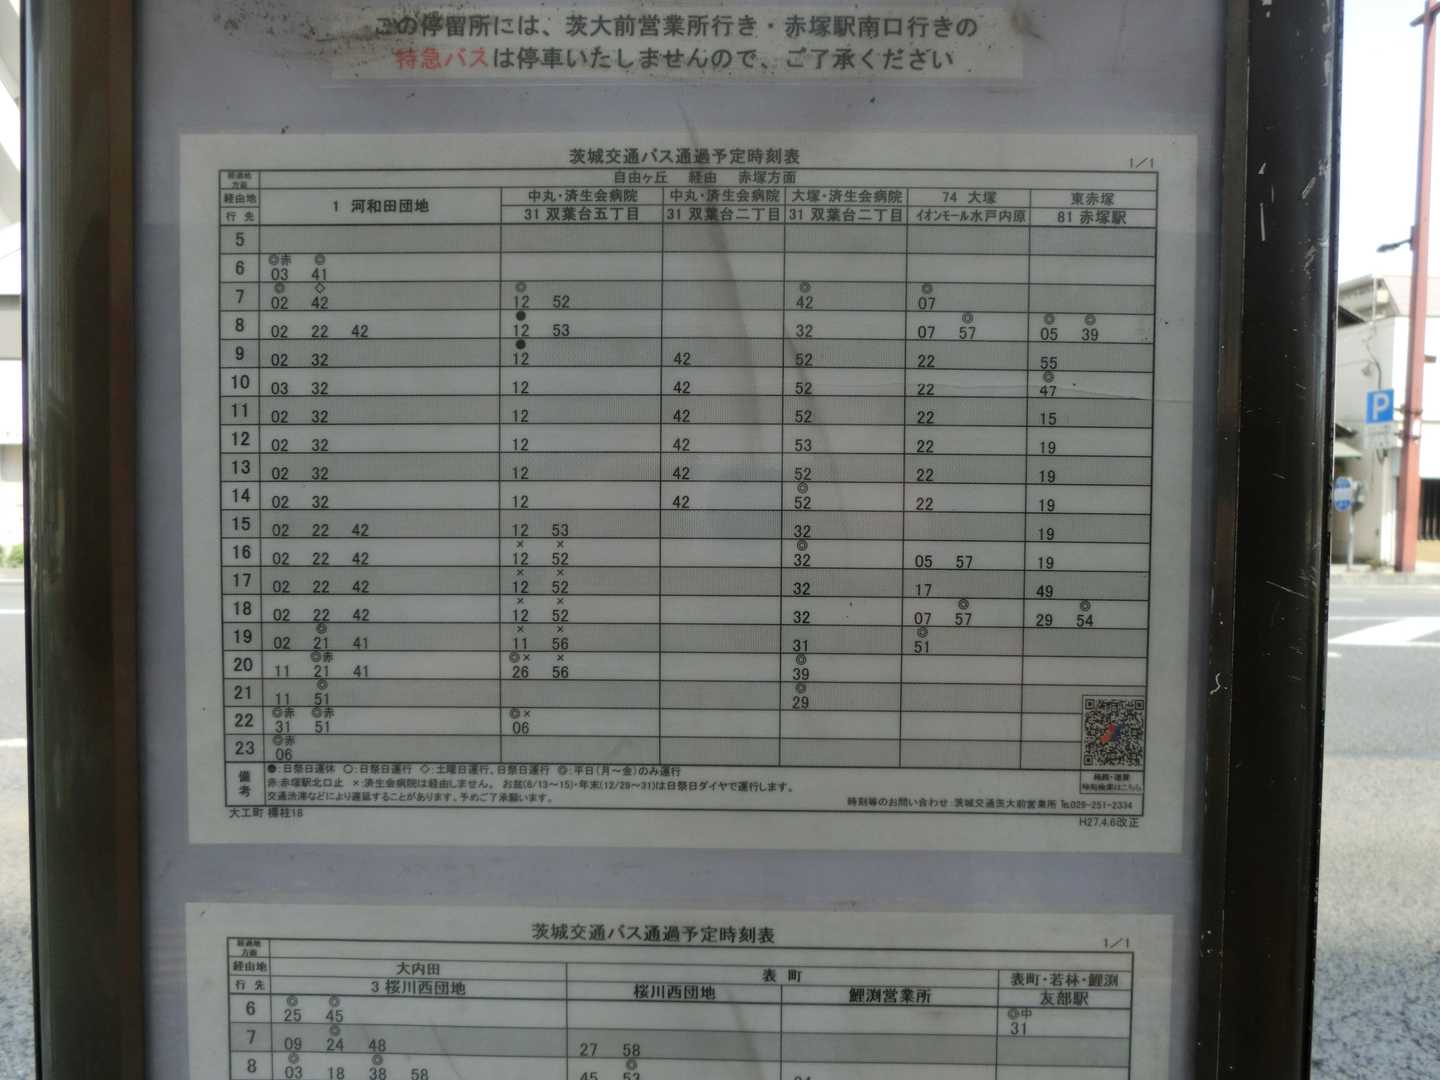 この停留所には、茨大前営業所行き・赤塚駅南口行きの
特急バスは停車いたしませんので、ご了承ください
茨城交通バス通過予定時刻表
1/1
経過地 方面 自由ヶ丘 経由 赤塚方面
経由地 1 河和田団地 中丸・済生会病院 中丸・済生会病院 大塚・済生会病院 74 大塚 東赤塚
行先 31 双葉台五丁目 31 双葉台二丁目 31 双葉台二丁目 イオンモール水戸内原 81 赤塚駅
5
◎赤 ◎
6 03 41
◎ ◇ ◎ ◎ ◎
7 02 42 12 52 42 07
● ◎ ◎ ◎
8 02 22 42 12 53 32 07 57 05 39
●
9 02 32 12 42 52 22 55
◎
10 03 32 12 42 52 22 47
11 02 32 12 42 52 22 15
12 02 32 12 42 53 22 19
13 02 32 12 42 52 22 19
◎
14 02 32 12 42 52 22 19
15 02 22 42 12 53 32 19
× × ◎
16 02 22 42 12 52 32 05 57 19
× ×
17 02 22 42 12 52 32 17 49
× × ◎ ◎
18 02 22 42 12 52 32 07 57 29 54
◎ × × ◎
19 02 21 41 11 56 31 51
◎赤 ◎× × ◎
20 11 21 41 26 56 39
◎ ◎
21 11 51 29
◎赤 ◎赤 ◎×
22 31 51 06
◎赤
23 06
備考 ●:日祭日運休 ○:日祭日運行 ◇:土曜日運行、日祭日運行 ◎:平日(月～金)のみ運行
赤:赤塚駅北口止 ×:済生会病院は経由しません。 お盆(8/13～15)・年末(12/29～31)は日祭日ダイヤで運行します。
交通渋滞などにより遅延することがあります。予めご了承願います。
時刻等のお問い合わせ:茨城交通茨大前営業所 ℡029-251-2334
大工町 標柱18
H27.4.6改正
茨城交通バス通過予定時刻表
1/1
経過地 方面
経由地 大内田 表町 表町・若林・鯉渕
行先 3 桜川西団地 桜川西団地 鯉渕営業所 友部駅
◎ ◎ ◎中
6 25 45 31
◎
7 09 24 48 27 58
◎ ◎ ◎
8 03 18 38 58 45 53
P